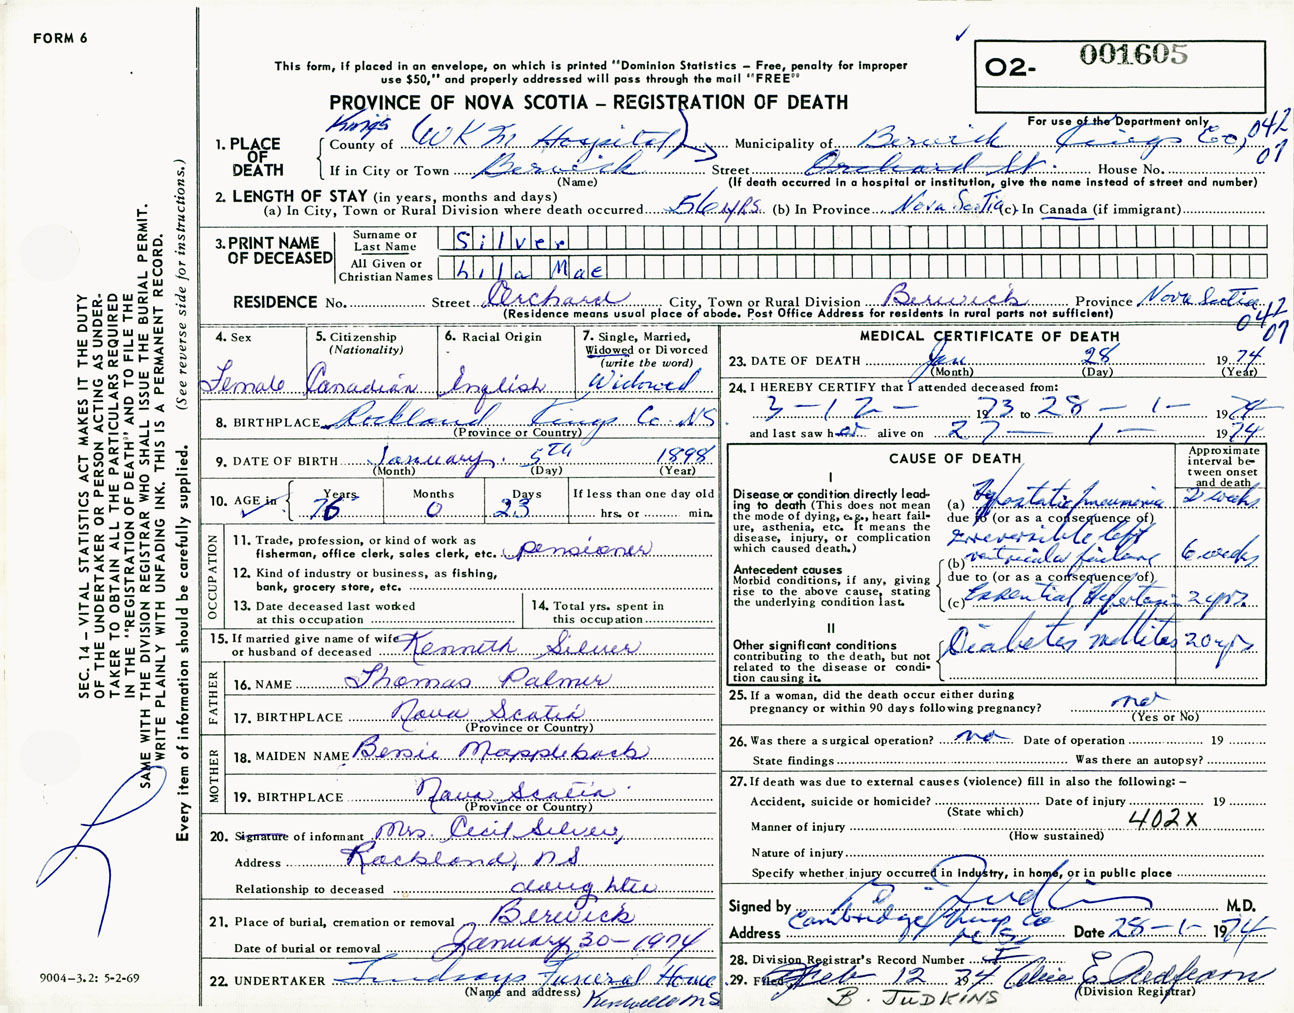 FORM 6
This form, if placed in an envelope, on which is printed "Dominion Statistics – Free, penalty for improper
use $50," and properly addressed will pass through the mail "FREE"
O2- 001605
PROVINCE OF NOVA SCOTIA – REGISTRATION OF DEATH
For use of the Department only
042
07
1. PLACE OF DEATH
Kings
County of (WKM Hospital) Municipality of Berwick Kings Co,
If in City or Town Berwick Street Orchard St. House No.
(Name) (If death occurred in a hospital or institution, give the name instead of street and number)
2. LENGTH OF STAY (in years, months and days)
(a) In City, Town or Rural Division where death occurred 56 yrs (b) In Province Nova Scotia (c) In Canada (if immigrant)
3. PRINT NAME OF DECEASED
Surname or Last Name Silver
All Given or Christian Names Lila Mae
RESIDENCE No. Street Orchard City, Town or Rural Division Berwick Province Nova Scotia
(Residence means usual place of abode. Post Office Address for residents in rural parts not sufficient)
042
07
4. Sex Female
5. Citizenship (Nationality) Canadian
6. Racial Origin English
7. Single, Married, Widowed or Divorced (write the word) Widowed
8. BIRTHPLACE Rockland Kings Co. NS
(Province or Country)
9. DATE OF BIRTH January 5th 1898
(Month) (Day) (Year)
10. AGE in Years 76 Months 0 Days 23 If less than one day old hrs. or min.
OCCUPATION
11. Trade, profession, or kind of work as
fisherman, office clerk, sales clerk, etc. pensioner
12. Kind of industry or business, as fishing,
bank, grocery store, etc.
13. Date deceased last worked
at this occupation
14. Total yrs. spent in
this occupation
15. If married give name of wife
or husband of deceased Kenneth Silver
FATHER
16. NAME Thomas Palmer
17. BIRTHPLACE Nova Scotia
(Province or Country)
MOTHER
18. MAIDEN NAME Bessie Mappleback
19. BIRTHPLACE Nova Scotia
(Province or Country)
20. Signature of informant Mrs. Cecil Silver,
Address Rockland, NS
Relationship to deceased daughter
21. Place of burial, cremation or removal Berwick
Date of burial or removal January 30-1974
22. UNDERTAKER Lindsays Funeral Home
(Name and address) Kentville NS
MEDICAL CERTIFICATE OF DEATH
23. DATE OF DEATH Jan 28 1974
(Month) (Day) (Year)
24. I HEREBY CERTIFY that I attended deceased from:
3 - 12 - 1973 to 28 - 1 - 1974
and last saw her alive on 27 - 1 - 1974
CAUSE OF DEATH
Approximate interval between onset and death
I
Disease or condition directly lead-
ing to death (This does not mean
the mode of dying, e.g., heart fail-
ure, asthenia, etc. It means the
disease, injury, or complication
which caused death.)
(a) Hypostatic pneumonia 2 weeks
due to (or as a consequence of)
Irreversible left
(b) ventricular failure 6 weeks
due to (or as a consequence of)
(c) Essential Hypertension 2 yrs.
Antecedent causes
Morbid conditions, if any, giving
rise to the above cause, stating
the underlying condition last.
II
Other significant conditions
contributing to the death, but not
related to the disease or condi-
tion causing it.
Diabetes mellites 20 yrs
25. If a woman, did the death occur either during
pregnancy or within 90 days following pregnancy? no
(Yes or No)
26. Was there a surgical operation? no Date of operation 19
State findings Was there an autopsy?
27. If death was due to external causes (violence) fill in also the following: –
Accident, suicide or homicide? Date of injury 19
(State which)
Manner of injury 402X
(How sustained)
Nature of injury
Specify whether injury occurred in industry, in home, or in public place
Signed by Judkins M.D.
Address Cambridge, Kings Co N.S. Date 28-1-1974
28. Division Registrar's Record Number
29. Filed Feb 12 1974
(Division Registrar)
B. JUDKINS
SEC. 14 – VITAL STATISTICS ACT MAKES IT THE DUTY
OF THE UNDERTAKER OR PERSON ACTING AS UNDER-
TAKER TO OBTAIN ALL THE PARTICULARS REQUIRED
IN THE "REGISTRATION OF DEATH" AND TO FILE THE
SAME WITH THE DIVISION REGISTRAR WHO SHALL ISSUE THE BURIAL PERMIT.
WRITE PLAINLY WITH UNFADING INK. THIS IS A PERMANENT RECORD.
Every item of information should be carefully supplied. (See reverse side for instructions.)
9004-3.2: 5-2-69